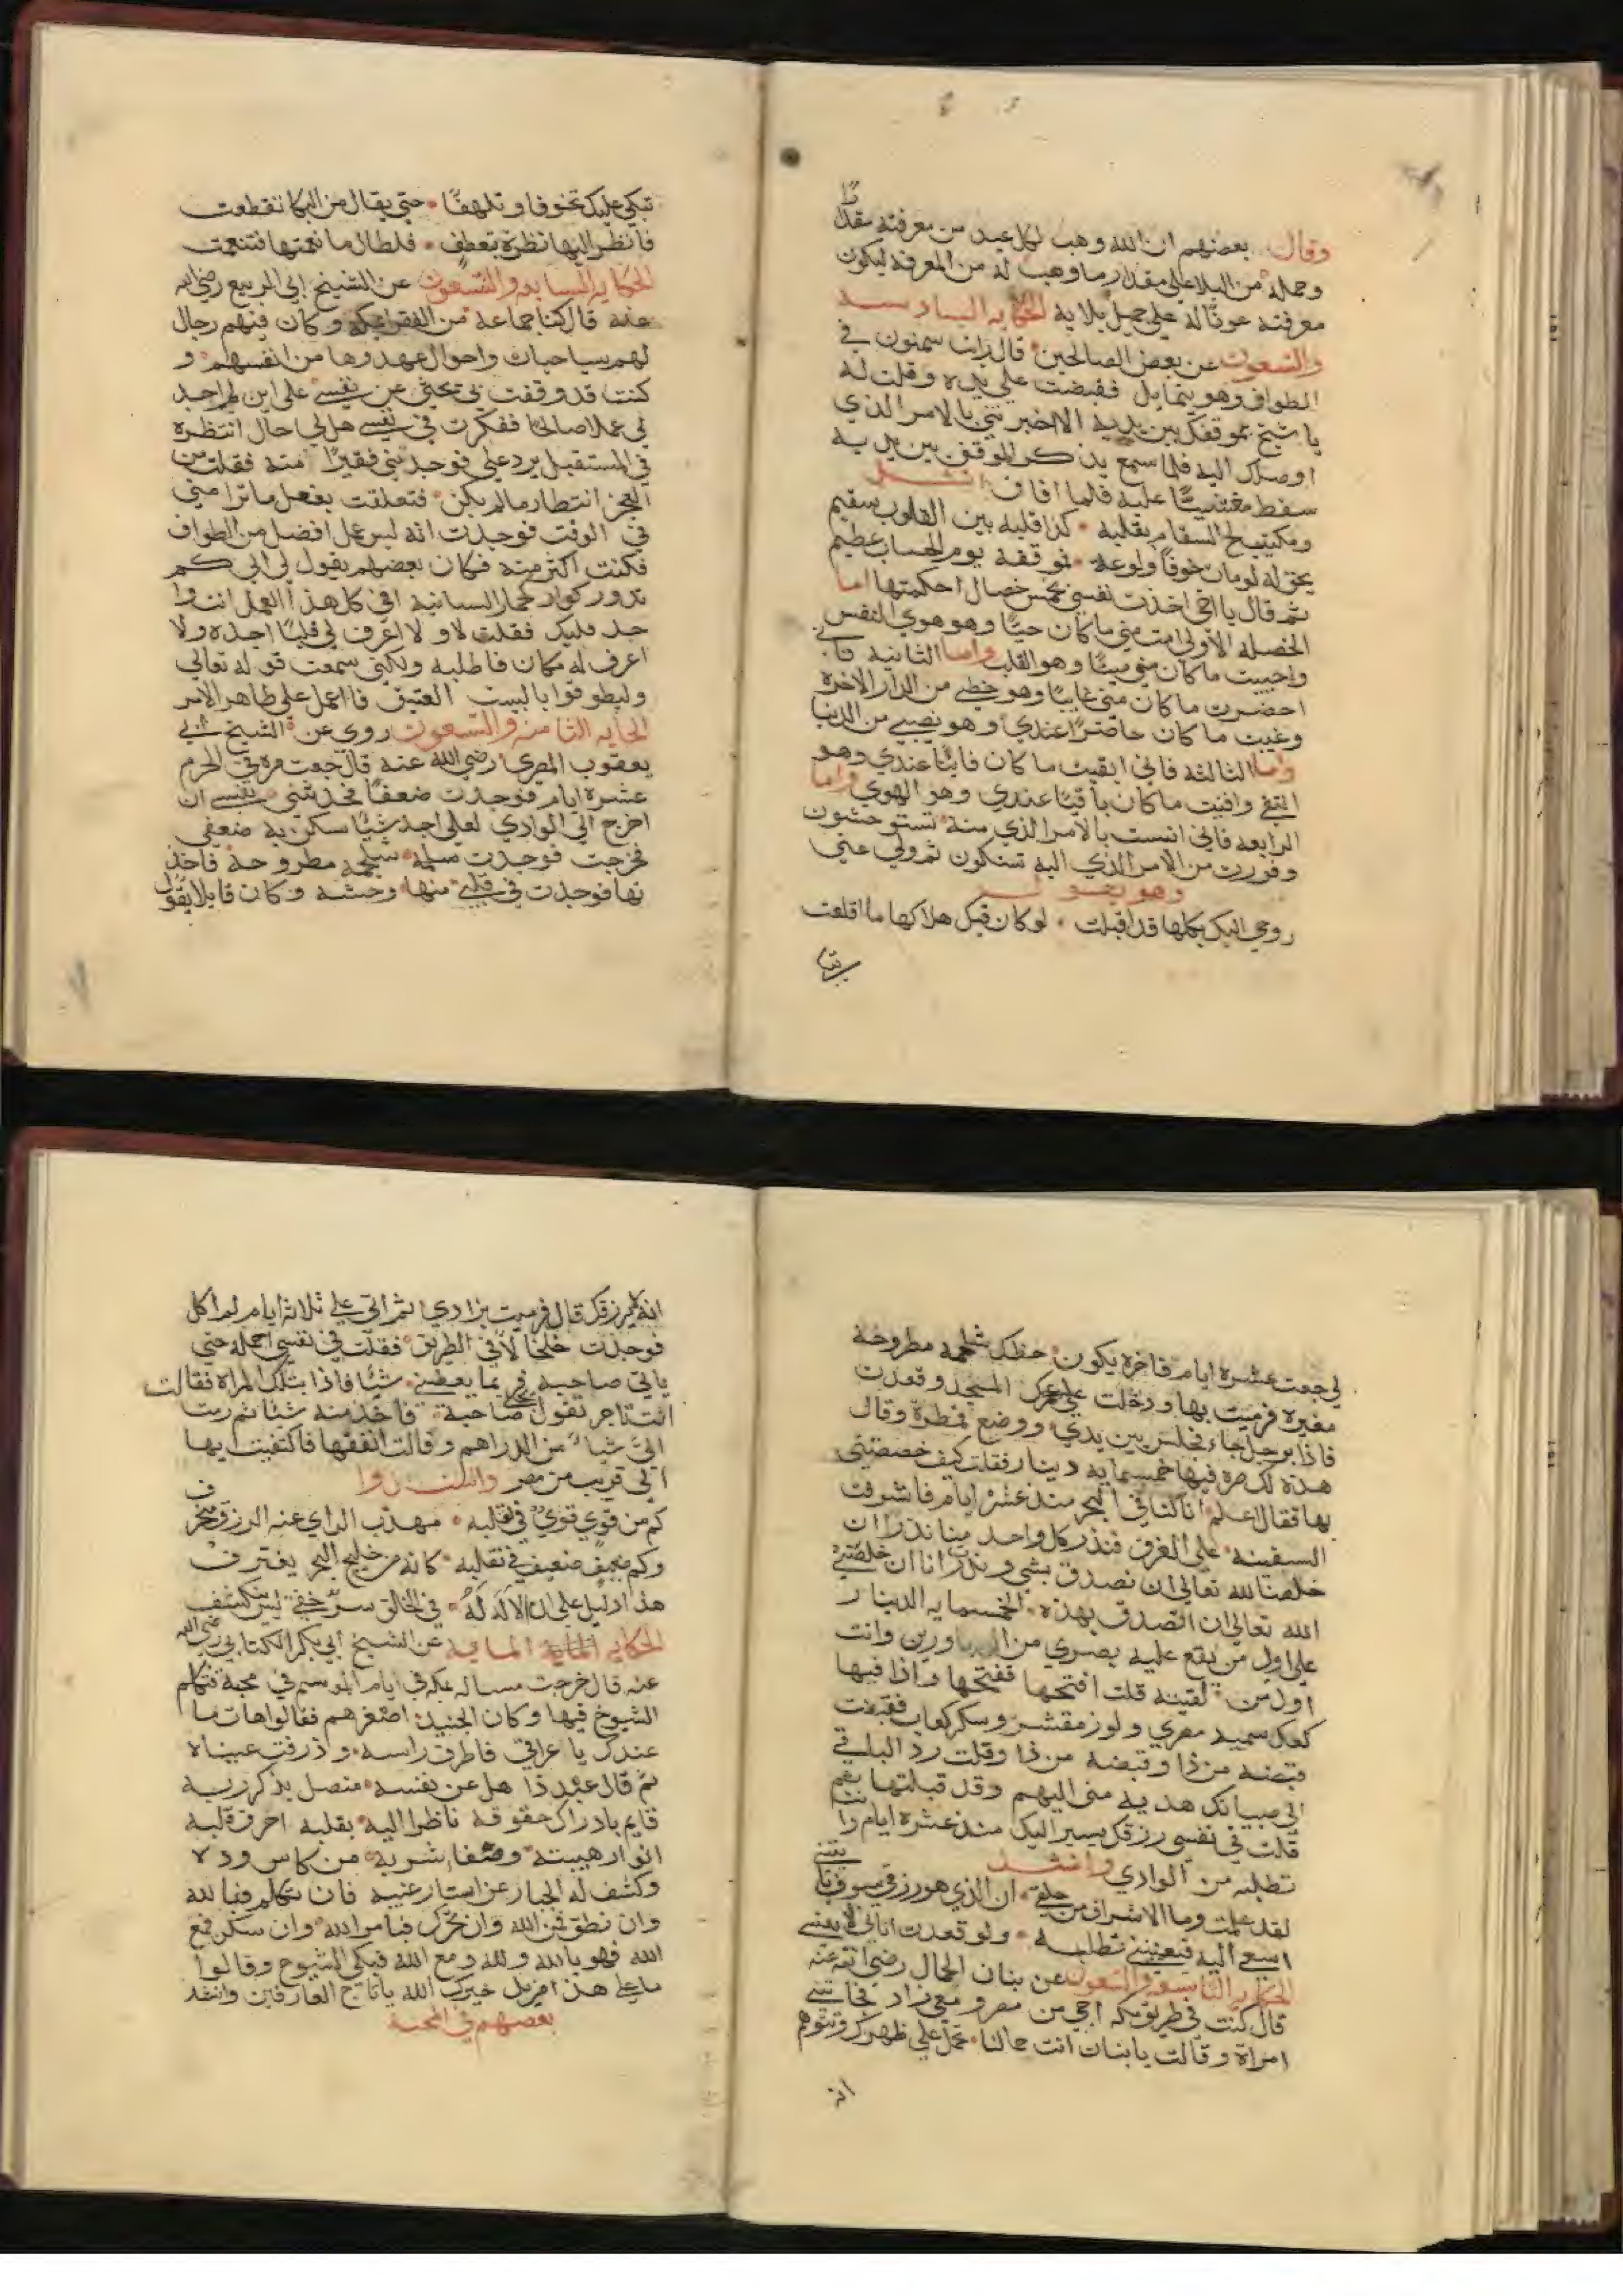 وقال بعضهم ان الله وهب لكل عبد من معرفته مقدارًا
وحمله من البلا على مقدار ما وهب له من المعرفة ليكون
معرفته عونًا له على حمل بلايه الحكايه السادسه
والتسعون عن بعض الصالحين قال رايت سمنون في
الطواف وهو يتمايل فقبضت على يده وقلت له
يا شيخ بموقفك بين يديه الا اخبرتني بالامر الذي
اوصلك اليه فلما سمع بذكر الموقف بين يديه
سقط مغشيًا عليه فلما افاق انشد
ومكتيب لج السقام بقلبه كذا قلبه بين القلوب سقيم
يحق له لومات خوفًا ولوعة لموقفه يوم الحساب عظيم
ثم قال يا اخي اخذت نفسي بخمس خصال احكمتها اما
الخصله الاولى امت مني ما كان حيًا وهو هوي النفس
واحييت ما كان مني ميتًا وهو القلب واما الثانية فاني
احضرت ما كان مني غايبًا وهو حظي من الدار الاخرة
وغيبت ما كان حاضرًا عندي وهو نصيبي من الدنيا
واما الثالثه فاني ابقيت ما كان فانيًا عندي وهو
التقي وافنيت ما كان باقيًا عندي وهو الهوي واما
الرابعه فاني انست بالامر الذي منه تستوحشون
وفررت من الامر الذي اليه تسكنون ثم ولي عني
وهو يقول
روحي اليك بكلها قد اقبلت لو كان فيك هلاكها ما اقلعت
تبكي
تبكي عليك تخوفا وتلهفًا حتي يقال من البكا تقطعت
فانظر اليها نظرة بتعطف فلطال ما نعمتها فتنعمت
الحكايه السابعه والتسعون عن الشيخ ابي الربيع رضي الله
عنه قال كنا جماعة من الفقرا بمكه وكان فينهم رجال
لهم سياحات واحوال عهدوها من انفسهم و
كنت قد وقفت في تحقق عن نفسي على ابن لم اجد
لي عملا صالحًا ففكرت في نفسي هل لي حال انتظره
في المستقبل يرد علي فوجدتني فقيرًا منه فقلت من
العجز انتظار ما لم يكن فتعلقت بفعل ما تراه مني
في الوقت فوجدت انه ليس عمل افضل من الطواف
فكنت اكثر منه فكان بعضهم يقول لي الي كم
تدور كوار كحمار السانية افي كل هذا العمل انت وا
جد قلبك فقلت لا ولا اعرف لي قلبًا اجده ولا
اعرف له مكان فاطلبه ولكني سمعت قوله تعالي
وليطوفوا بالبيت العتيق فااعمل على ظاهر الامر
الحكايه الثامنه والتسعون روي عن الشيخ ابي
يعقوب البصري رضي الله عنه قال جعت مره في الحرم
عشرة ايام فوجدت ضعفًا فحدثتني نفسي ان
اخرج الي الوادي لعلي اجد شيًا اسكن به ضعفي
فخرجت فوجدت سلجمه مطروحة فاخذ
تها فوجدت في قلبي منها وحشه وكان قايلا يقول
لي جعت عشرة ايام فاخره يكون حظك شلجمه مطروحه
مغبره فرميت بها ودخلت المسجد وقعدت
فاذا برجل جاء فجلس بين يدي ووضع قمطرة وقال
هذه لك صره فيها خمسمايه دينار فقلت كيف خصصتني
بها فقال اعلم انا كنا في البحر منذ عشرة ايام فاشرفت
السفينه على الغرق فنذر كل واحد منا نذرا ان
خلصنا الله تعالى ان نصدق بشي ونذرت انا ان خلصني
الله تعالى ان اتصدق بهذه الخمسمايه الدينار
على اول من يقع عليه بصري من المجاورين وانت
اول من لقيته قلت افتحها ففتحها واذا فيها
كعك سميد مصري ولوز مقشر وسكر كعاب فقبضت
قبضه من ذا وقبضه من ذا وقلت رد الباقي
الي صبيانك هديه مني اليهم وقد قبلتها ثم
قلت في نفسي رزقك يسير اليك منذ عشرة ايام وانت
تطلبه من الوادي وانشد
لقد علمت وما الاشراف من خلقي ان الذي هو رزقي سوف ياتيني
اسعي اليه فيعنيني تطلبه ولو قعدت اتاني لا يعنيني
الحكايه التاسعه والتسعون عن بنان الحمال رضي الله عنه
قال كنت في طريق مكه اجي من مصر ومعي زاد فجاتني
امراة وقالت يا بنان انت حمال تحمل على ظهرك وتتوهم
انه
انه لا يرزقك قال فرميت بزادي ثم اتي علي ثلاثة ايام لم اكل
فوجدت خلخالًا في الطريق فقلت في نفسي احمله حتي
ياتي صاحبه فربما يعطيني شيًا فاذا بتلك المراه فقالت
انت تاجر تقول يجي صاحبه فاخذ منه شيًا ثم رمت
الي شيًا من الدراهم وقالت انفقها فاكتفيت بها
الي قريب من مصر وانشدوا
كم من قوي قوي في تقلبه مهذب الراي عنه الرزق منحرف
وكم ضعيف ضعيف في تقلبه كانه من خليج البحر يغترف
هذا دليل على ان الاله له في الخلق سر خفي ليس ينكشف
الحكايه الماية عن الشيخ ابي بكر الكتاني رضي الله
عنه قال خرجت مساله بمكه في ايام الموسم في محبة فتكلم
الشيوخ فيها وكان الجنيد اصغرهم فقالوا هات ما
عندك يا عراقي فاطرق راسه وذرفت عيناه
ثم قال عبد ذاهل عن نفسه متصل بذكر ربه
قايم باداء حقوقه ناظرا اليه بقلبه احرق قلبه
انوار هيبته وصفا شربه من كاس وده
وكشف له الجبار عن استار غيبه فان تكلم فبالله
وان نطق فمن الله وان تحرك فبامر الله وان سكن فمع
الله فهو بالله ولله ومع الله فبكي الشيوخ وقالوا
ما علي هذا مزيد خيرك الله يا تاج العارفين وانشد
بعضهم في المحبة